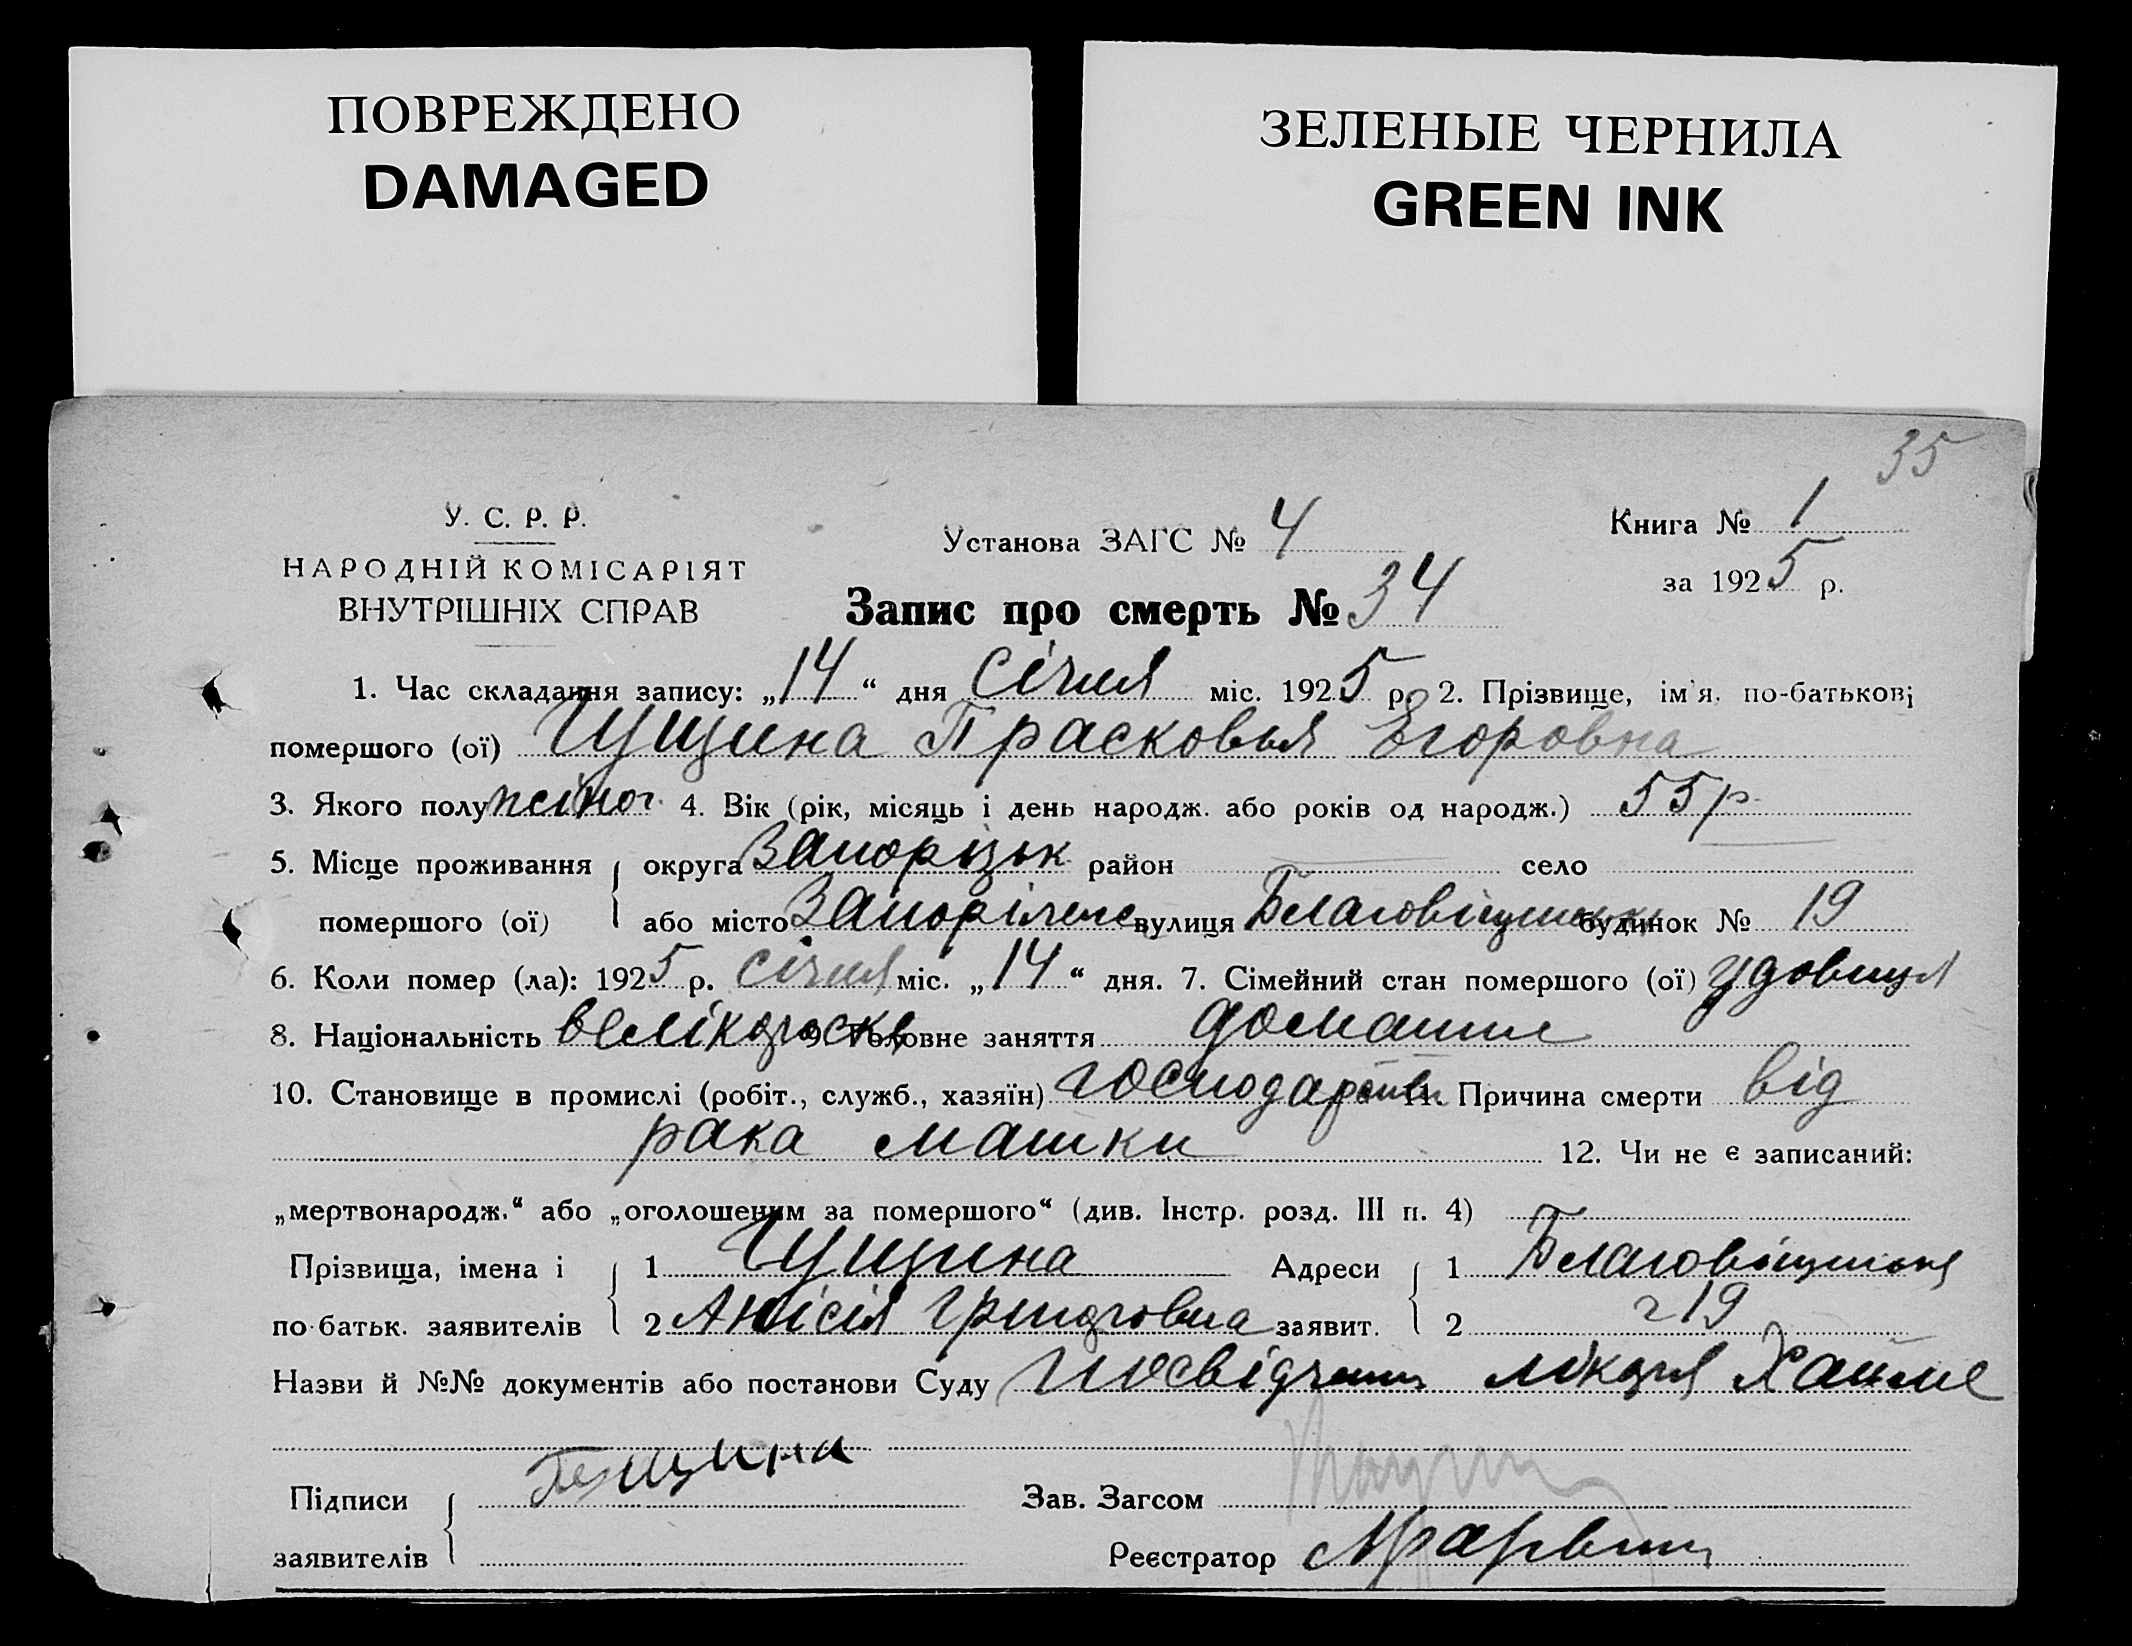 ПОВРЕЖДЕНО
DAMAGED
ЗЕЛЕНЫЕ ЧЕРНИЛА
GREEN INK
35
У. С. Р. Р.
НАРОДНІЙ КОМІСАРІЯТ
ВНУТРІШНІХ СПРАВ
Установа ЗАГС № 4
Книга № 1
за 1925 р.
Запис про смерть № 34
1. Час складання запису: „14“ дня січня міс. 1925 р. 2. Прізвище, ім'я, по-батькові
помершого (ої) Гущина Прасковья Егоровна
3. Якого полу жіноч. 4. Вік (рік, місяць і день народж. або років од народж.) 55 р.
5. Місце проживання округа Запорізьк район село
помершого (ої) або місто вулиця будинок № 19
6. Коли помер (ла): 1925 р. січня міс. „14“ дня. 7. Сімейний стан помершого (ої) удовиця
8. Національність 9. Головне заняття домашнє
10. Становище в промислі (робіт., служб., хазяїн) 11. Причина смерти від
рака матки 12. Чи не є записаний:
„мертвонародж.“ або „оголошеним за помершого“ (див. Інстр. розд. III п. 4)
Прізвища, імена і 1 Гущина Адреси 1
по-батьк. заявителів 2 Анісія заявит. 2 19
Назви й №№ документів або постанови Суду лікаря
Підписи Гущина Зав. Загсом
заявителів Реєстратор